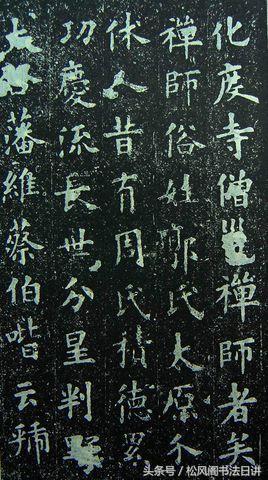 化度寺僧邕禪師者矣
禪師俗姓郭氏太原介
休人昔有周氏積德累
功慶流長世分星判野
藩維蔡伯喈云虢
头条号 / 松风阁书法日讲